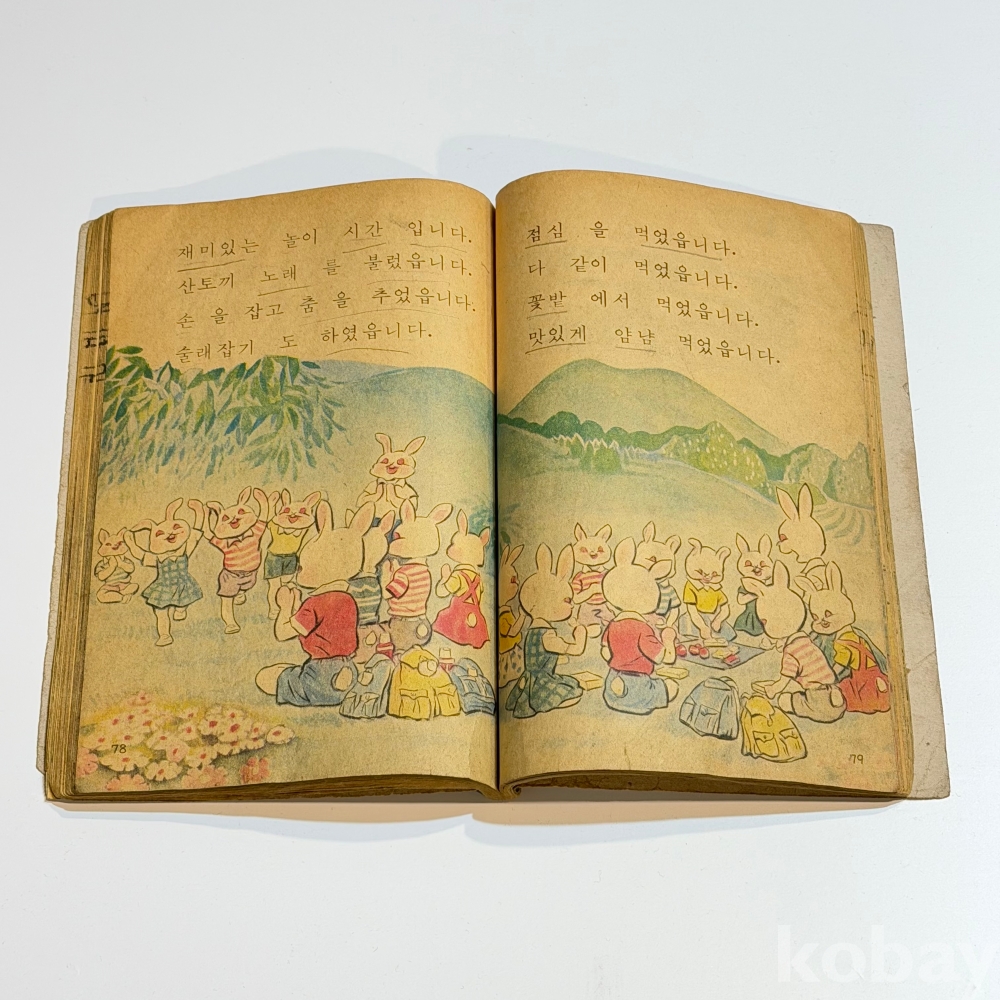 재미있는 놀이 시간 입니다.
산토끼 노래 를 불렀읍니다.
손 을 잡고 춤 을 추었읍니다.
술래잡기 도 하였읍니다.
78
점심 을 먹었읍니다.
다 같이 먹었읍니다.
꽃밭 에서 먹었읍니다.
맛있게 얌냠 먹었읍니다.
79
kobay